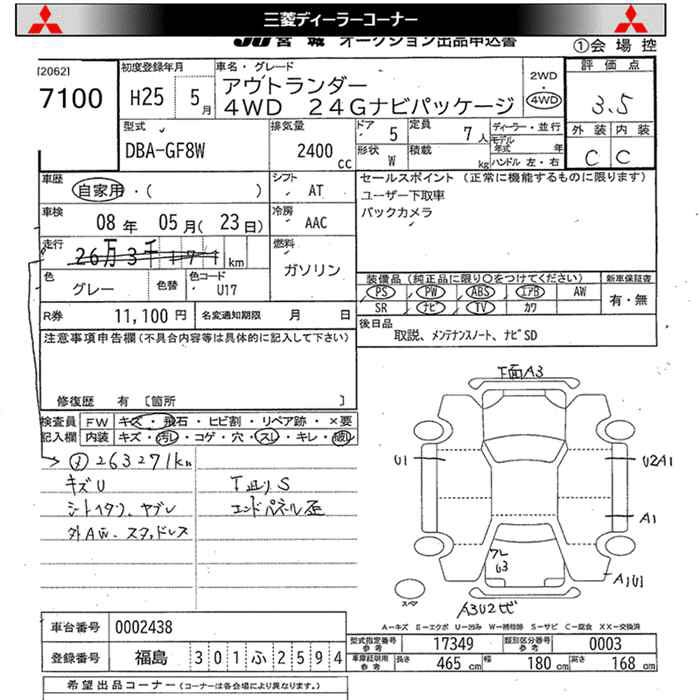 三菱ディーラーコーナー
JU宮城 オークション出品申込書
①会場控
[2062]
7100
初度登録年月
H25 5月
車名・グレード
アウトランダー
4WD 24Gナビパッケージ
2WD
4WD
評価点
3.5
外装 内装
C C
型式
DBA-GF8W
排気量
2400 cc
ドア 5
定員 7人
形状 W
積載 kg
ディーラー・並行
モデル年式 年
ハンドル 左・右
車歴
自家用・( )
シフト AT
車検
08年 05月(23日)
冷房 AAC
走行
26万3千171km
燃料
ガソリン
色
グレー
色替
色コード
U17
R券 11,100円
名変通知期限 月 日
セールスポイント (正常に機能するものに限ります)
ユーザー下取車
バックカメラ
装備品(純正品に限り○をつけてください)
新車保証書
PS PW ABS エアB AW
SR ナビ TV カワ
有・無
後日品
取説、メンテナンスノート、ナビSD
注意事項申告欄(不具合内容等は具体的に記入して下さい)
修復歴 有 〔箇所 〕
検査員記入欄
FW キズ・飛石・ヒビ割・リペア跡・×要
内装 キズ・汚レ・コゲ・穴・スレ・キレ・破レ
→メ263271km
キズU
シートヘタリ、ヤブレ
外AW・スタッドレス
下廻りS
エンドパネル歪
下面A3
U1
U2A1
A1
ワレ
U3
A1U1
A3U2ヒビ
スペア
A－キズ E－エクボ U－凹み W－補修跡 S－サビ C－腐食 XX－交換済
車台番号 0002438
登録番号 福島 301ふ2594
型式指定番号 17349
類別区分番号 0003
車庫証明用参考 長さ 465cm 幅 180cm 高さ 168cm
希望出品コーナー(コーナーは各会場により異なります。)